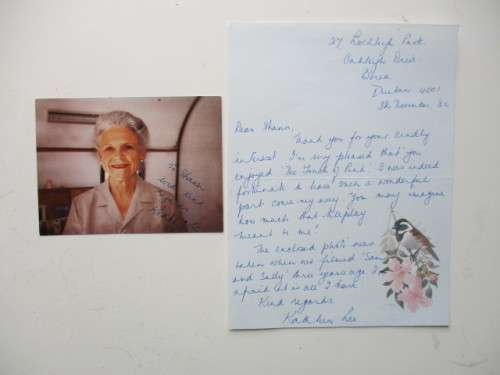 To Shaun
27 Lochleigh Park
Oakleigh Drive
Berea
Durban 4001
Dear Shaun,
Thank you for your kindly
interest. I'm very pleased that you
enjoyed 'The of Pink'. I was indeed
fortunate to have such a wonderful
part come my way. You may imagine
how much that
meant to me!
The enclosed photo was
taken when we filmed 'Sam
and Sally' three years ago. I'm
afraid it is all I have
Kind regards
Kathleen Lee